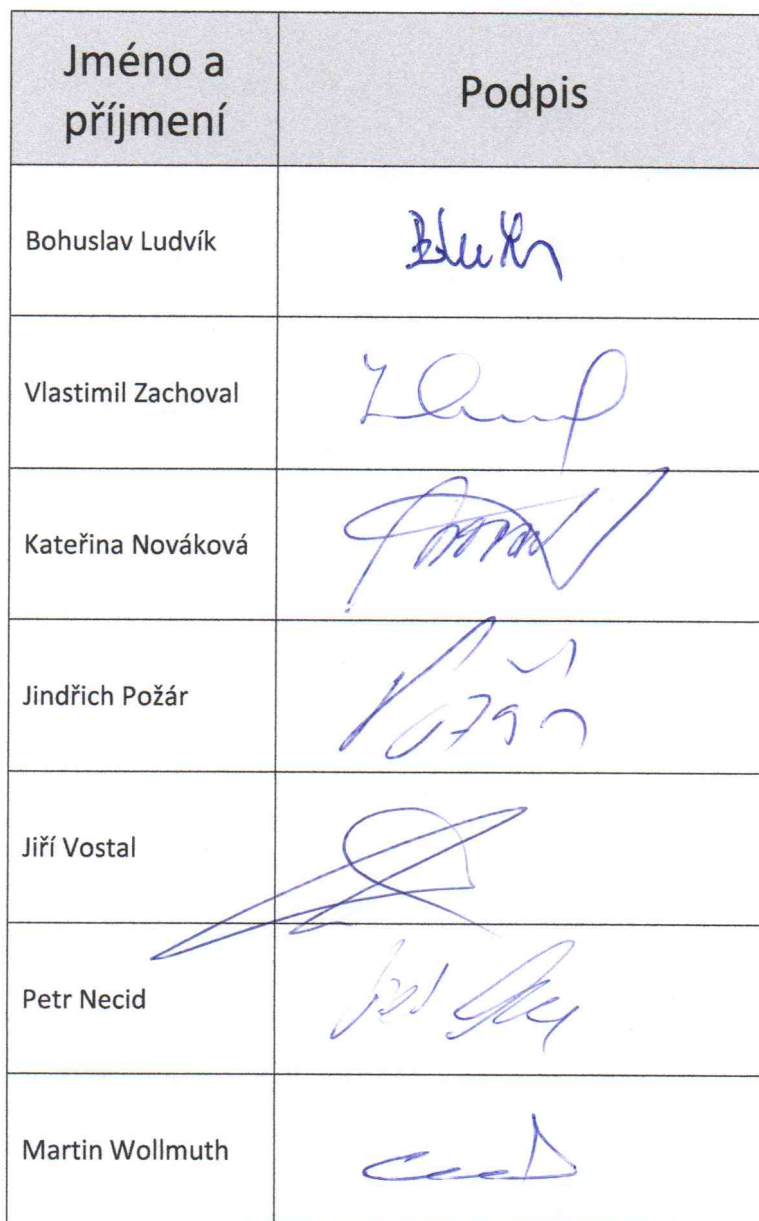 Jméno a
příjmení
Podpis
Bohuslav Ludvík
Vlastimil Zachoval
Kateřina Nováková
Jindřich Požár
Požár
Jiří Vostal
Petr Necid
Martin Wollmuth